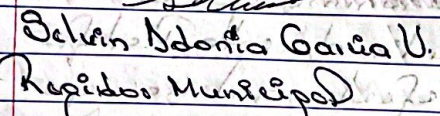 Selvin Adonia Garcia V.
Regidor Municipal